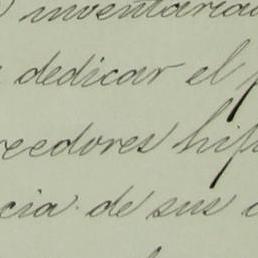 inventariad
dedicar el p
reedores hip
cia de sus